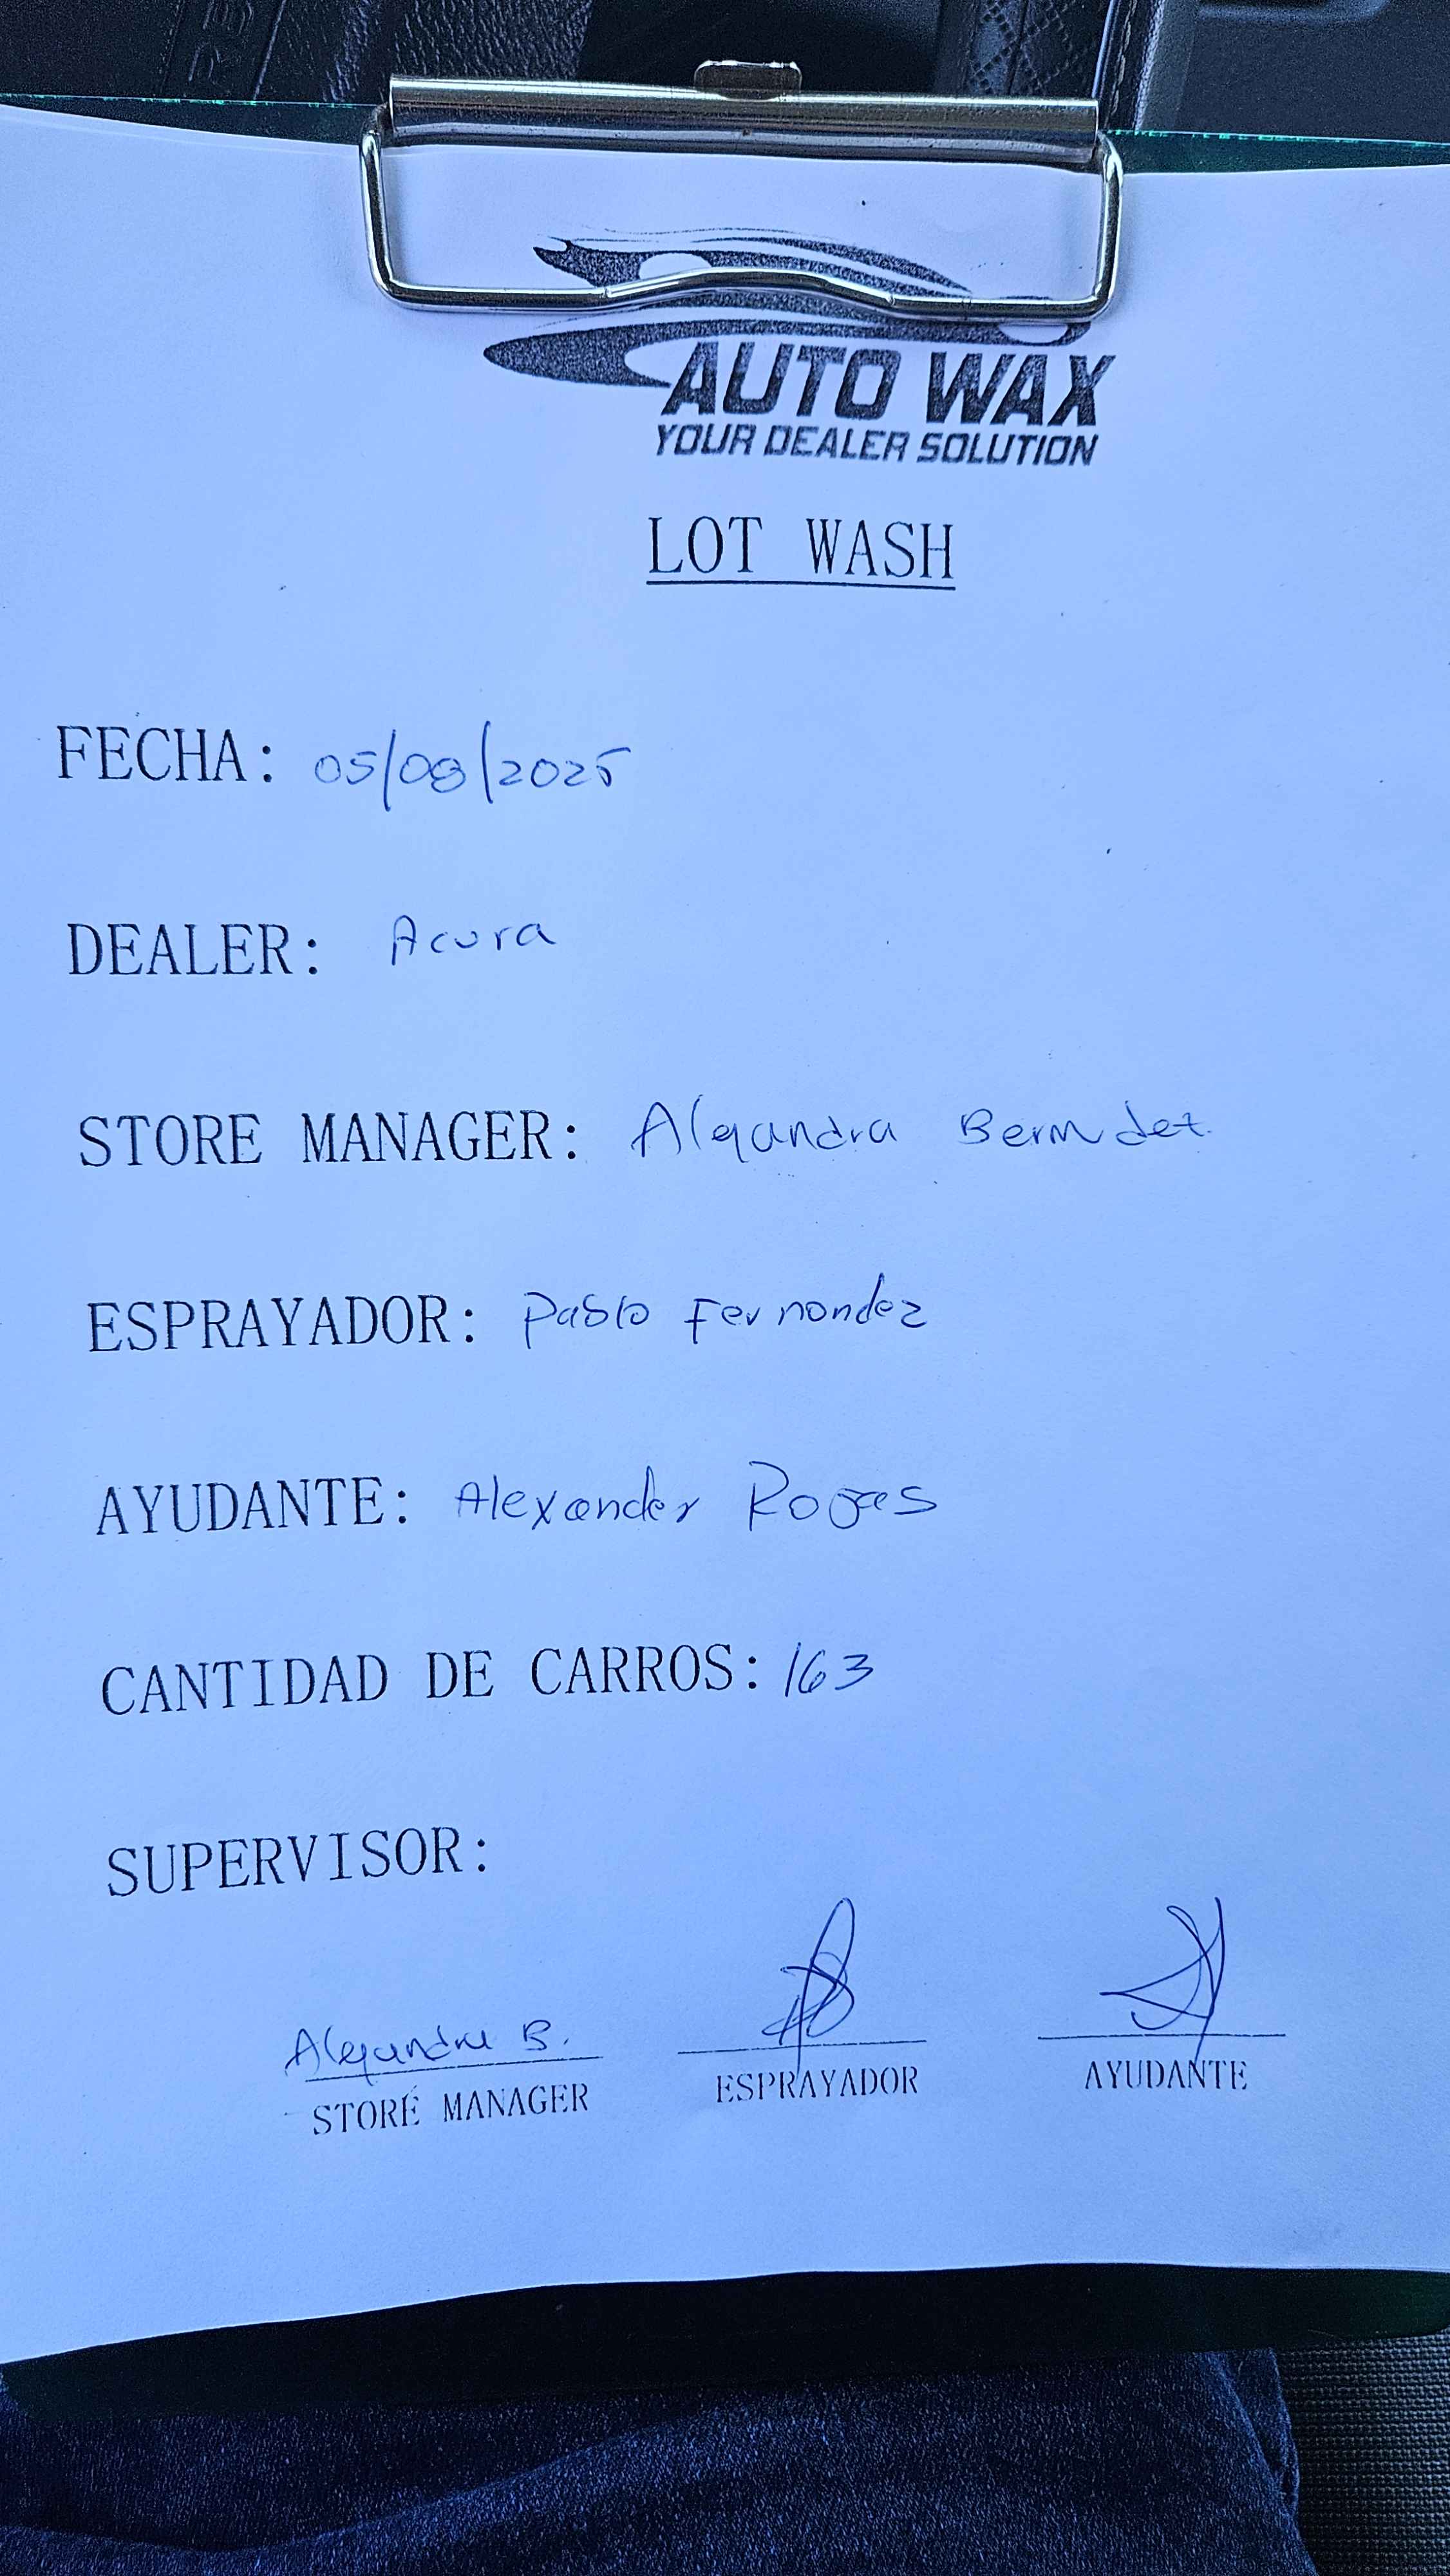 AUTO WAX
YOUR DEALER SOLUTION
LOT WASH
FECHA: 05/08/2025
DEALER: Acura
STORE MANAGER: Alejandra Bermudez
ESPRAYADOR: Pablo Fernandez
AYUDANTE: Alexander Rojas
CANTIDAD DE CARROS: 163
SUPERVISOR:
Alejandra B.
STORE MANAGER ESPRAYADOR AYUDANTE